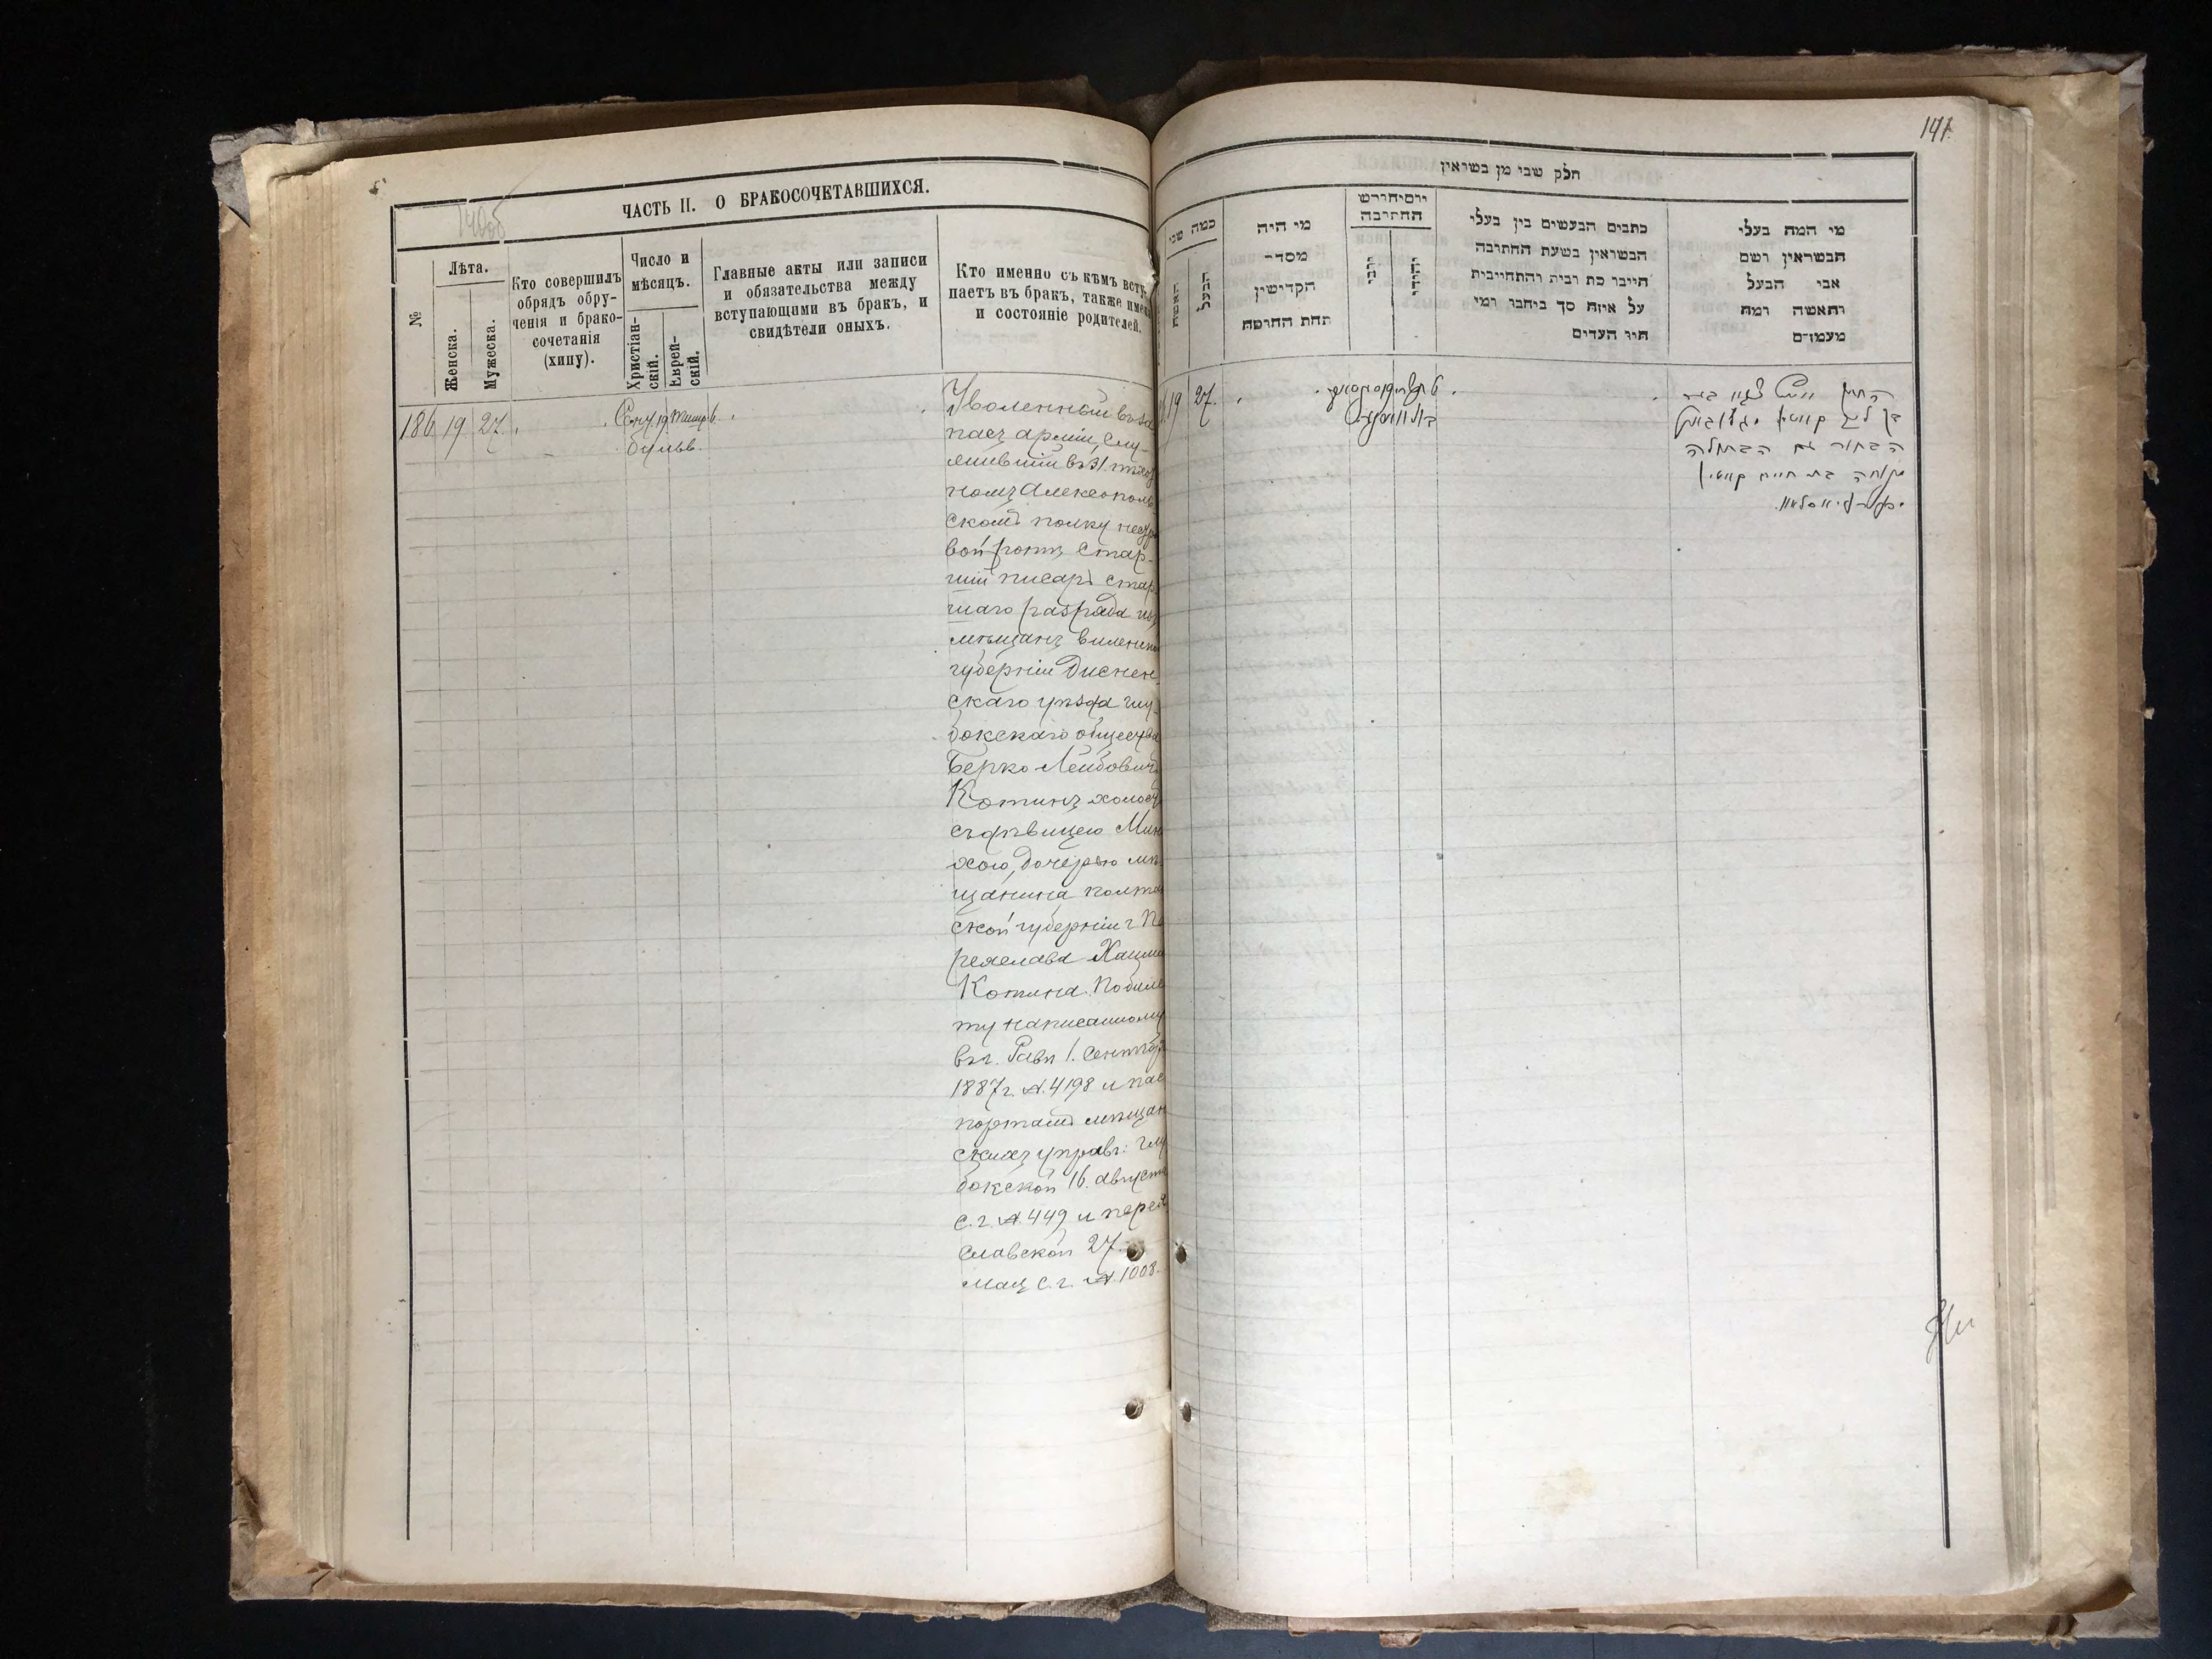 ЧАСТЬ II. О БРАКОСОЧЕТАВШИХСЯ.
№
Лѣта.
Женска.
Мужеска.
Кто совершилъ
обрядъ обру-
ченія и брако-
сочетанія
(хипу).
Число и
мѣсяцъ.
Христіан-
скій.
Еврей-
скій.
Главные акты или записи
и обязательства между
вступающими въ бракъ, и
свидѣтели оныхъ.
Кто именно съ кѣмъ всту-
паетъ въ бракъ, также имена
и состояніе родителей.
186 19 27. Сент. 19 Тишр. 6.
бульв.
Уволенный въ за
пасъ арміи, слу-
жившій въ 31. пѣхот
номъ Алексополь
скомъ полку нестро
вой ротѣ стар-
шій писарь стар
шаго разряда изъ
мѣщанъ виленской
губерніи Диснен
скаго уѣзда глу-
бокскаго общества
Берко Лейбовичъ
Котинъ холост
съ дѣвицею Мин
хою, дочерью мѣ
щанина полтав
ской губерніи г. Пе
реяслава Хаима
Котина. По биле
ту написанному
въ г. Равѣ 1. Сентября
1887 г. №. 4198 и пас
портамъ мѣщан
скихъ управъ: глу
бокской 16. августа
с. г. №. 449 и перея
славской 27
мая с. г. №. 1008.
141.
חלק שני מן בשואין
כמה שני
האשה
הבעל
מי היה
מסדר
הקדישין
תחת החופה
יום וחודש
החתונה
נוצרי
יהודי
כתבים הנעשים בין בעלי
הנשואין בשעת החתונה
חייבו כת וביה והתחייבות
על איזה סך ביחבו ומי
היו העדים
מי המה בעלי
הנשואין ושם
אבי הבעל
והאשה ומה
מעמדם
19 27.
בן ליב קוטין
הבחור עם הבתולה
מנוחה בת חיים קוטין